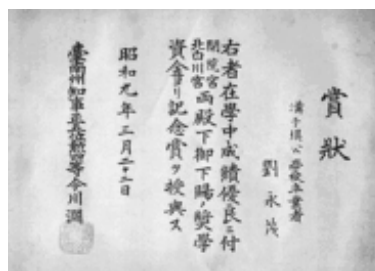 賞狀
溝子墘公學校卒業者
劉永茂
右者在學中成績優良ニ付
閑院宮
北白川宮 両殿下御下賜ノ奬學
資金ヨリ記念賞ヲ授與ス
昭和九年三月二十二日
臺南州知事正五位勳四等今川淵